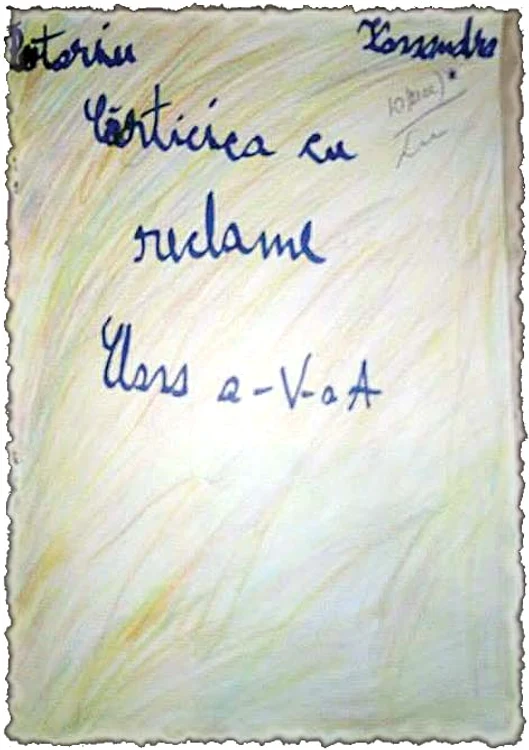 Rotariu Kassandra
10 (zece)
Cărticica cu
reclame
Clasa a-V-a A